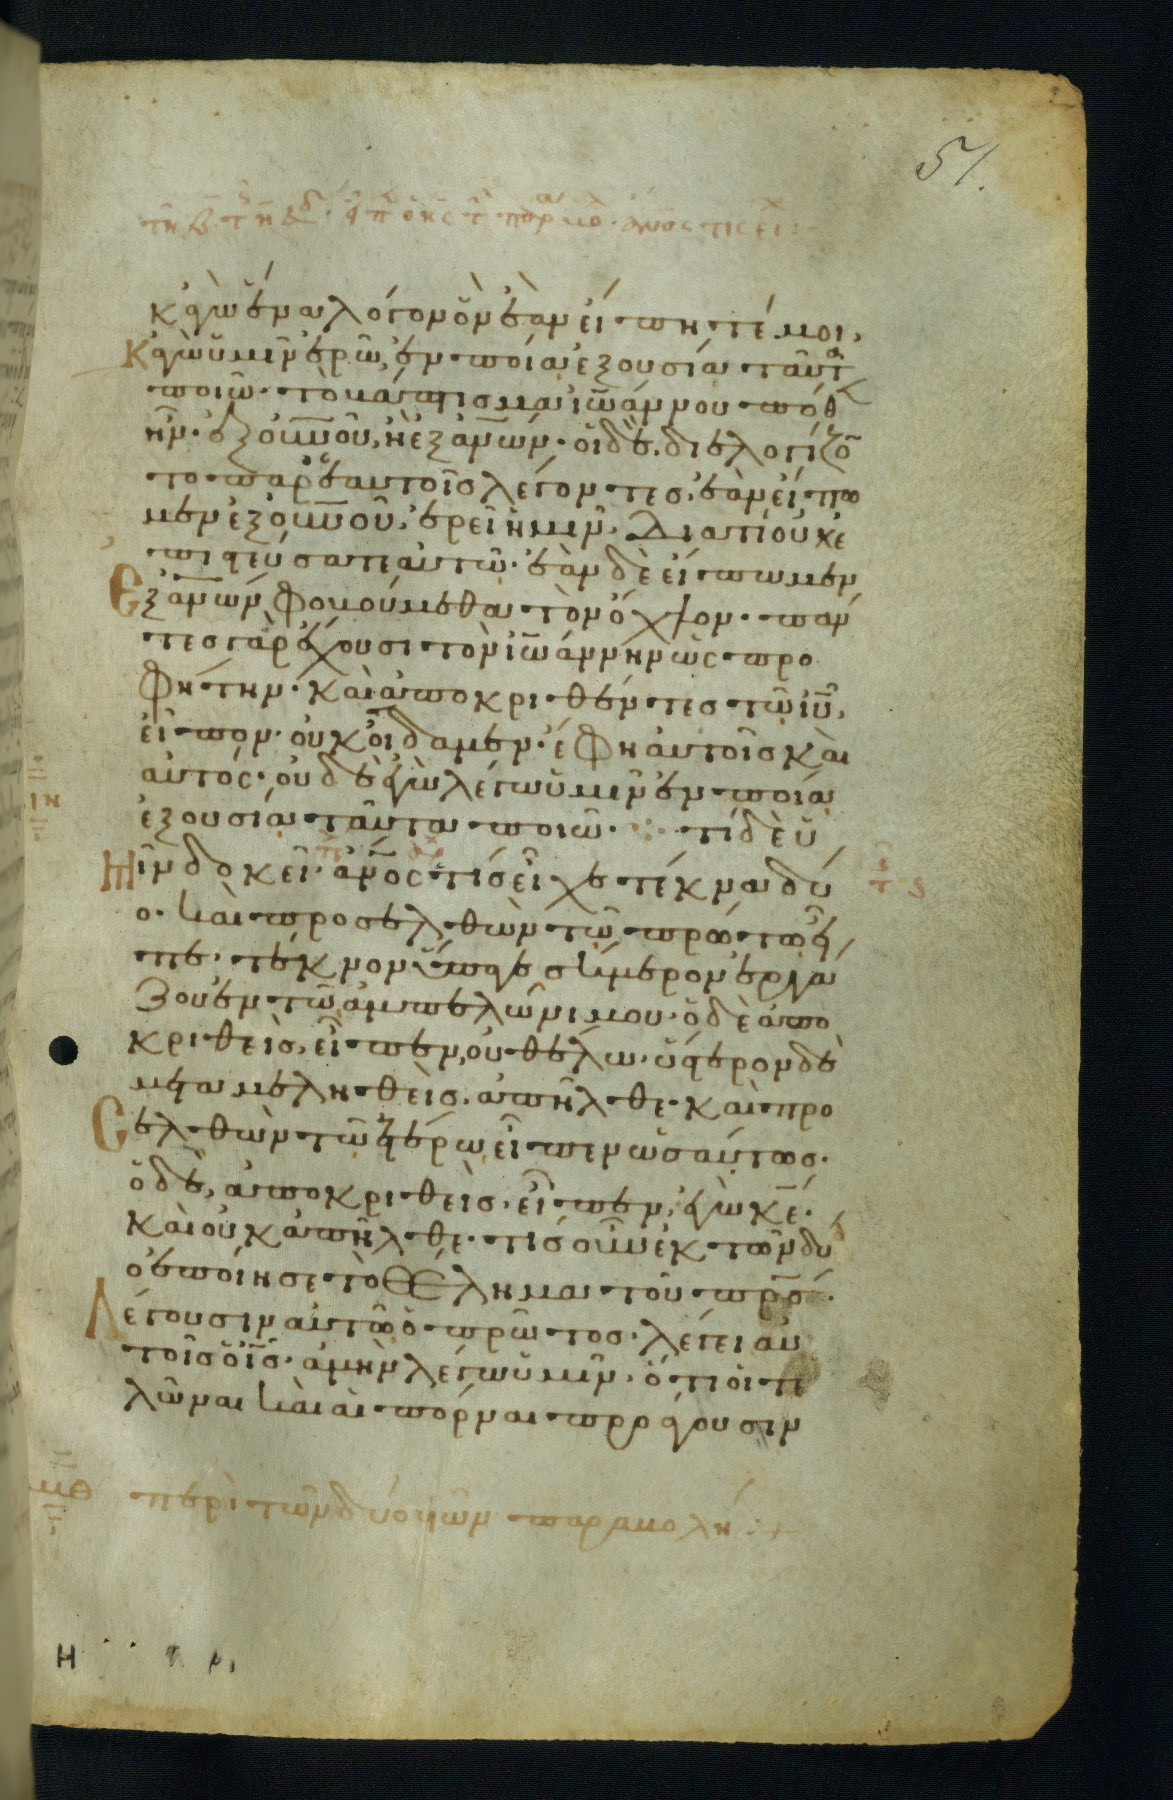 51.
κἀγὼ ἕνα λόγον ὃν ἐὰν εἴπητέ μοι,
κἀγὼ ὑμῖν ἐρῶ, ἐν ποίᾳ ἐξουσίᾳ ταῦτα
ποιῶ· τὸ βάπτισμα ἰωάννου πόθεν
ἦν· ἐξ οὐνοῦ, ἢ ἐξ ἀνων· οἱ δὲ διελογίζον
το παρ' ἑαυτοῖς λέγοντες, ἐὰν εἴπω
μεν ἐξ οὐνοῦ, ἐρεῖ ἡμῖν· διατί οὐκ ἐ
πιστεύσατε αὐτῷ· ἐὰν δὲ εἴπωμεν
ἐξ ἀνων, φοβούμεθα τὸν ὄχλον· πάν
τες γὰρ ἔχουσι τὸν ἰωάννην ὡς προ
φήτην· καὶ ἀποκριθέντες τῷ ιυ,
εἶπον· οὐκ οἴδαμεν· ἔφη αὐτοῖς καὶ
αὐτός· οὐδὲ ἐγὼ λέγω ὑμῖν ἐν ποίᾳ
ἐξουσίᾳ ταῦτα ποιῶ· τί δὲ ὑ
μῖν δοκεῖ· ἀνος τίς εἶχε τέκνα δύ
ο· καὶ προσελθὼν τῷ πρώτῳ εἶ
πε· τέκνον ὕπαγε σήμερον ἐργά
ζου ἐν τῷ ἀμπελῶνι μου· ὁ δὲ ἀπο
κριθεὶς, εἶπεν, οὐ θέλω· ὕστερον δὲ
μεταμεληθεὶς, ἀπῆλθε· καὶ προ
σελθὼν τῷ ἑτέρῳ εἶπεν ὡσαύτως·
ὁ δὲ, ἀποκριθεὶς, εἶπεν, ἐγὼ κε·
καὶ οὐκ ἀπῆλθε· τίς οὖν ἐκ τῶν δύ
ο ἐποίησε τὸ θέλημα τοῦ πρς·
λέγουσιν αὐτῷ ὁ πρῶτος· λέγει αὐ
τοῖς ὁ ις· ἀμὴν λέγω ὑμῖν, ὅτι οἱ τε
λῶναι καὶ αἱ πόρναι προάγουσιν
μθ περὶ τῶν δύο υἱῶν παραβολή